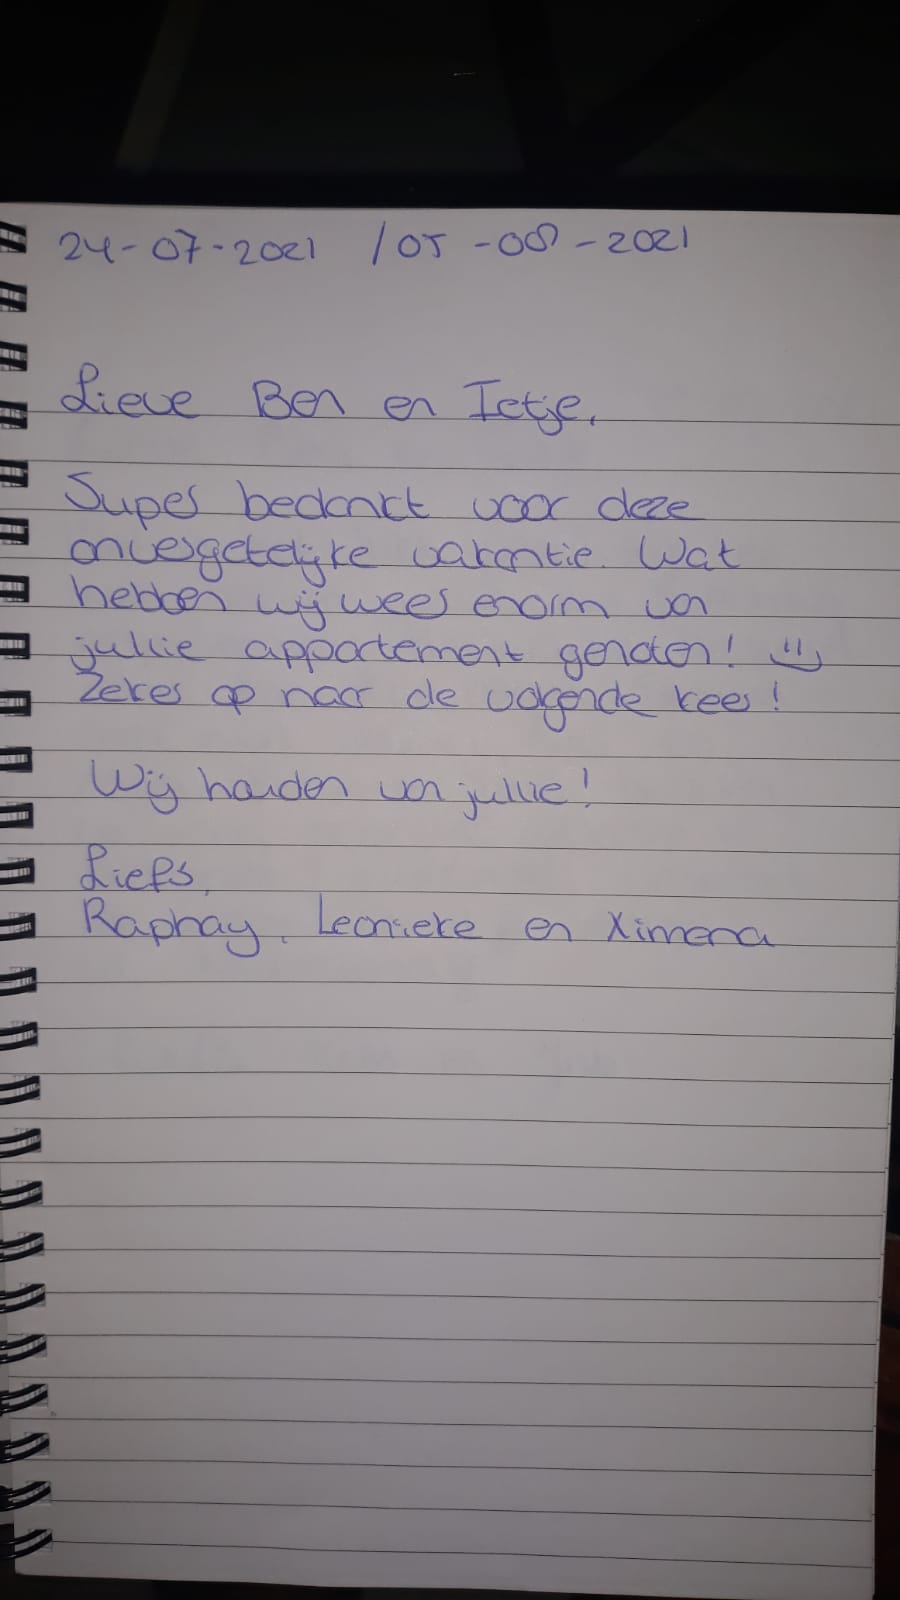 24-07-2021 / 05-08-2021
Lieve Ben en Ietje,
Super bedankt voor deze
onvergetelijke vakantie. Wat
hebben wij weer enorm van
jullie appartement genoten! :)
Zeker op naar de volgende keer!
Wij houden van jullie!
Liefs,
Raphay, Leonieke en Ximena